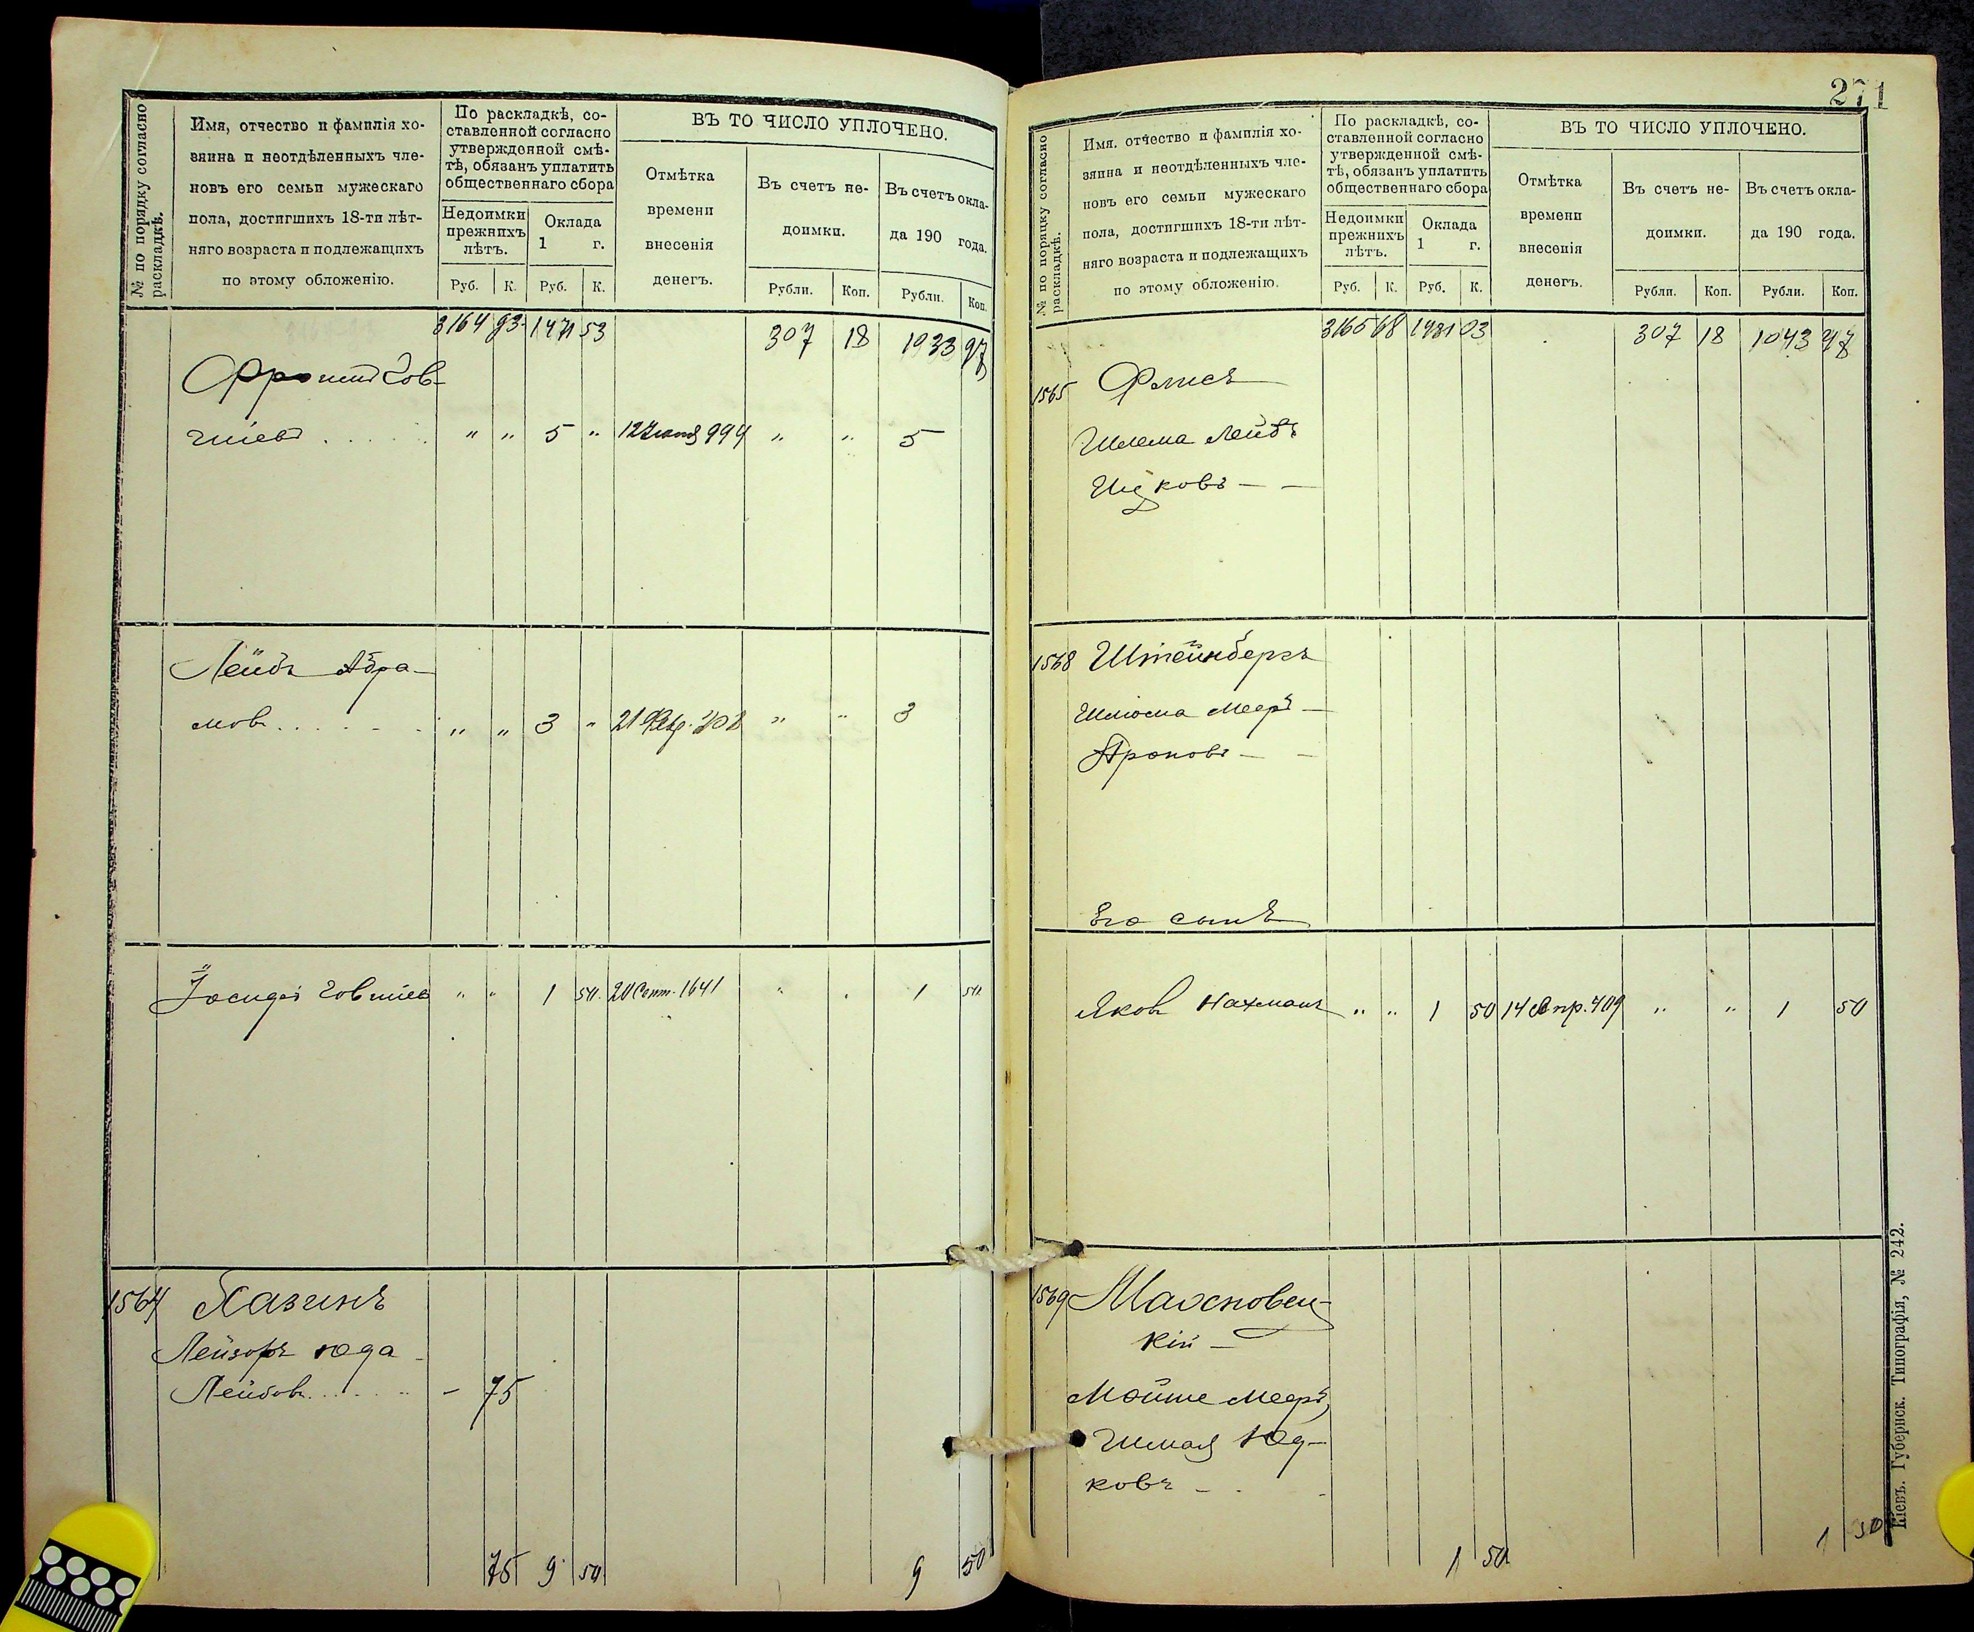 № по порядку согласно
раскладкѣ.
Имя, отчество и фамилія хо-
зяина и неотдѣленныхъ чле-
новъ его семьи мужескаго
пола, достигшихъ 18-ти лѣт-
няго возраста и подлежащихъ
по этому обложенію.
По раскладкѣ, со-
ставленной согласно
утвержденной смѣ-
тѣ, обязанъ уплатить
общественнаго сбора
Недоимки
прежнихъ
лѣтъ.
Оклада
1 г.
Руб. К. Руб. К.
ВЪ ТО ЧИСЛО УПЛОЧЕНО.
Отмѣтка
времени
внесенія
денегъ.
Въ счетъ не-
доимки.
Въ счетъ окла-
да 190 года.
Рубли. Коп. Рубли. Коп.
3164 93 1471 53 307 18 1933 97
" " 5 " " " 5
Лейбъ Абра-
мовъ " " 3 " 21 Февр. " " 3
Іосифъ " " 1 50 20 Сент. 1641 " " 1 50
1564 Хазинъ
Лейзоръ Юда
Лейбовъ - 75
75 9 50 9 50
271
№ по порядку согласно
раскладкѣ.
Имя, отчество и фамилія хо-
зяина и неотдѣленныхъ чле-
новъ его семьи мужескаго
пола, достигшихъ 18-ти лѣт-
няго возраста и подлежащихъ
по этому обложенію.
По раскладкѣ, со-
ставленной согласно
утвержденной смѣ-
тѣ, обязанъ уплатить
общественнаго сбора
Недоимки
прежнихъ
лѣтъ.
Оклада
1 г.
Руб. К. Руб. К.
ВЪ ТО ЧИСЛО УПЛОЧЕНО.
Отмѣтка
времени
внесенія
денегъ.
Въ счетъ не-
доимки.
Въ счетъ окла-
да 190 года.
Рубли. Коп. Рубли. Коп.
3165 68 1481 03 307 18 1043 47
1565 Флисъ
Шлема Лейбъ
Ицковъ
1568 Штейнбергъ
Шлюма Мееръ
Ароновъ
Его сынъ
Яковъ Нахманъ " " 1 50 14 Апр. 409 " " 1 50
1569
кій
Мойше Мееръ,
Шмая Юд-
ковъ
1 50 1 50
Кіевъ. Губернск. Типографія, № 242.